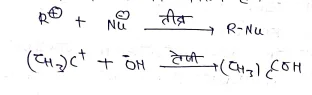 R⊕ + Nu⊖ तीव्र→ R-Nu
(CH3)C+ + ŌH तेजी→ (CH3)COH